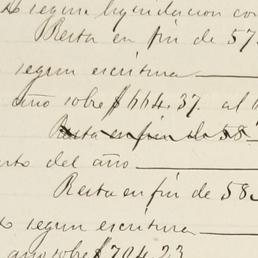 segun liquidacion con
Resta en fin de 57.
segun escritura
año sobre $664.37. al 6
Resta en fin de 58
rto del año
Resta en fin de 58.
segun escritura
año sobre $704.23